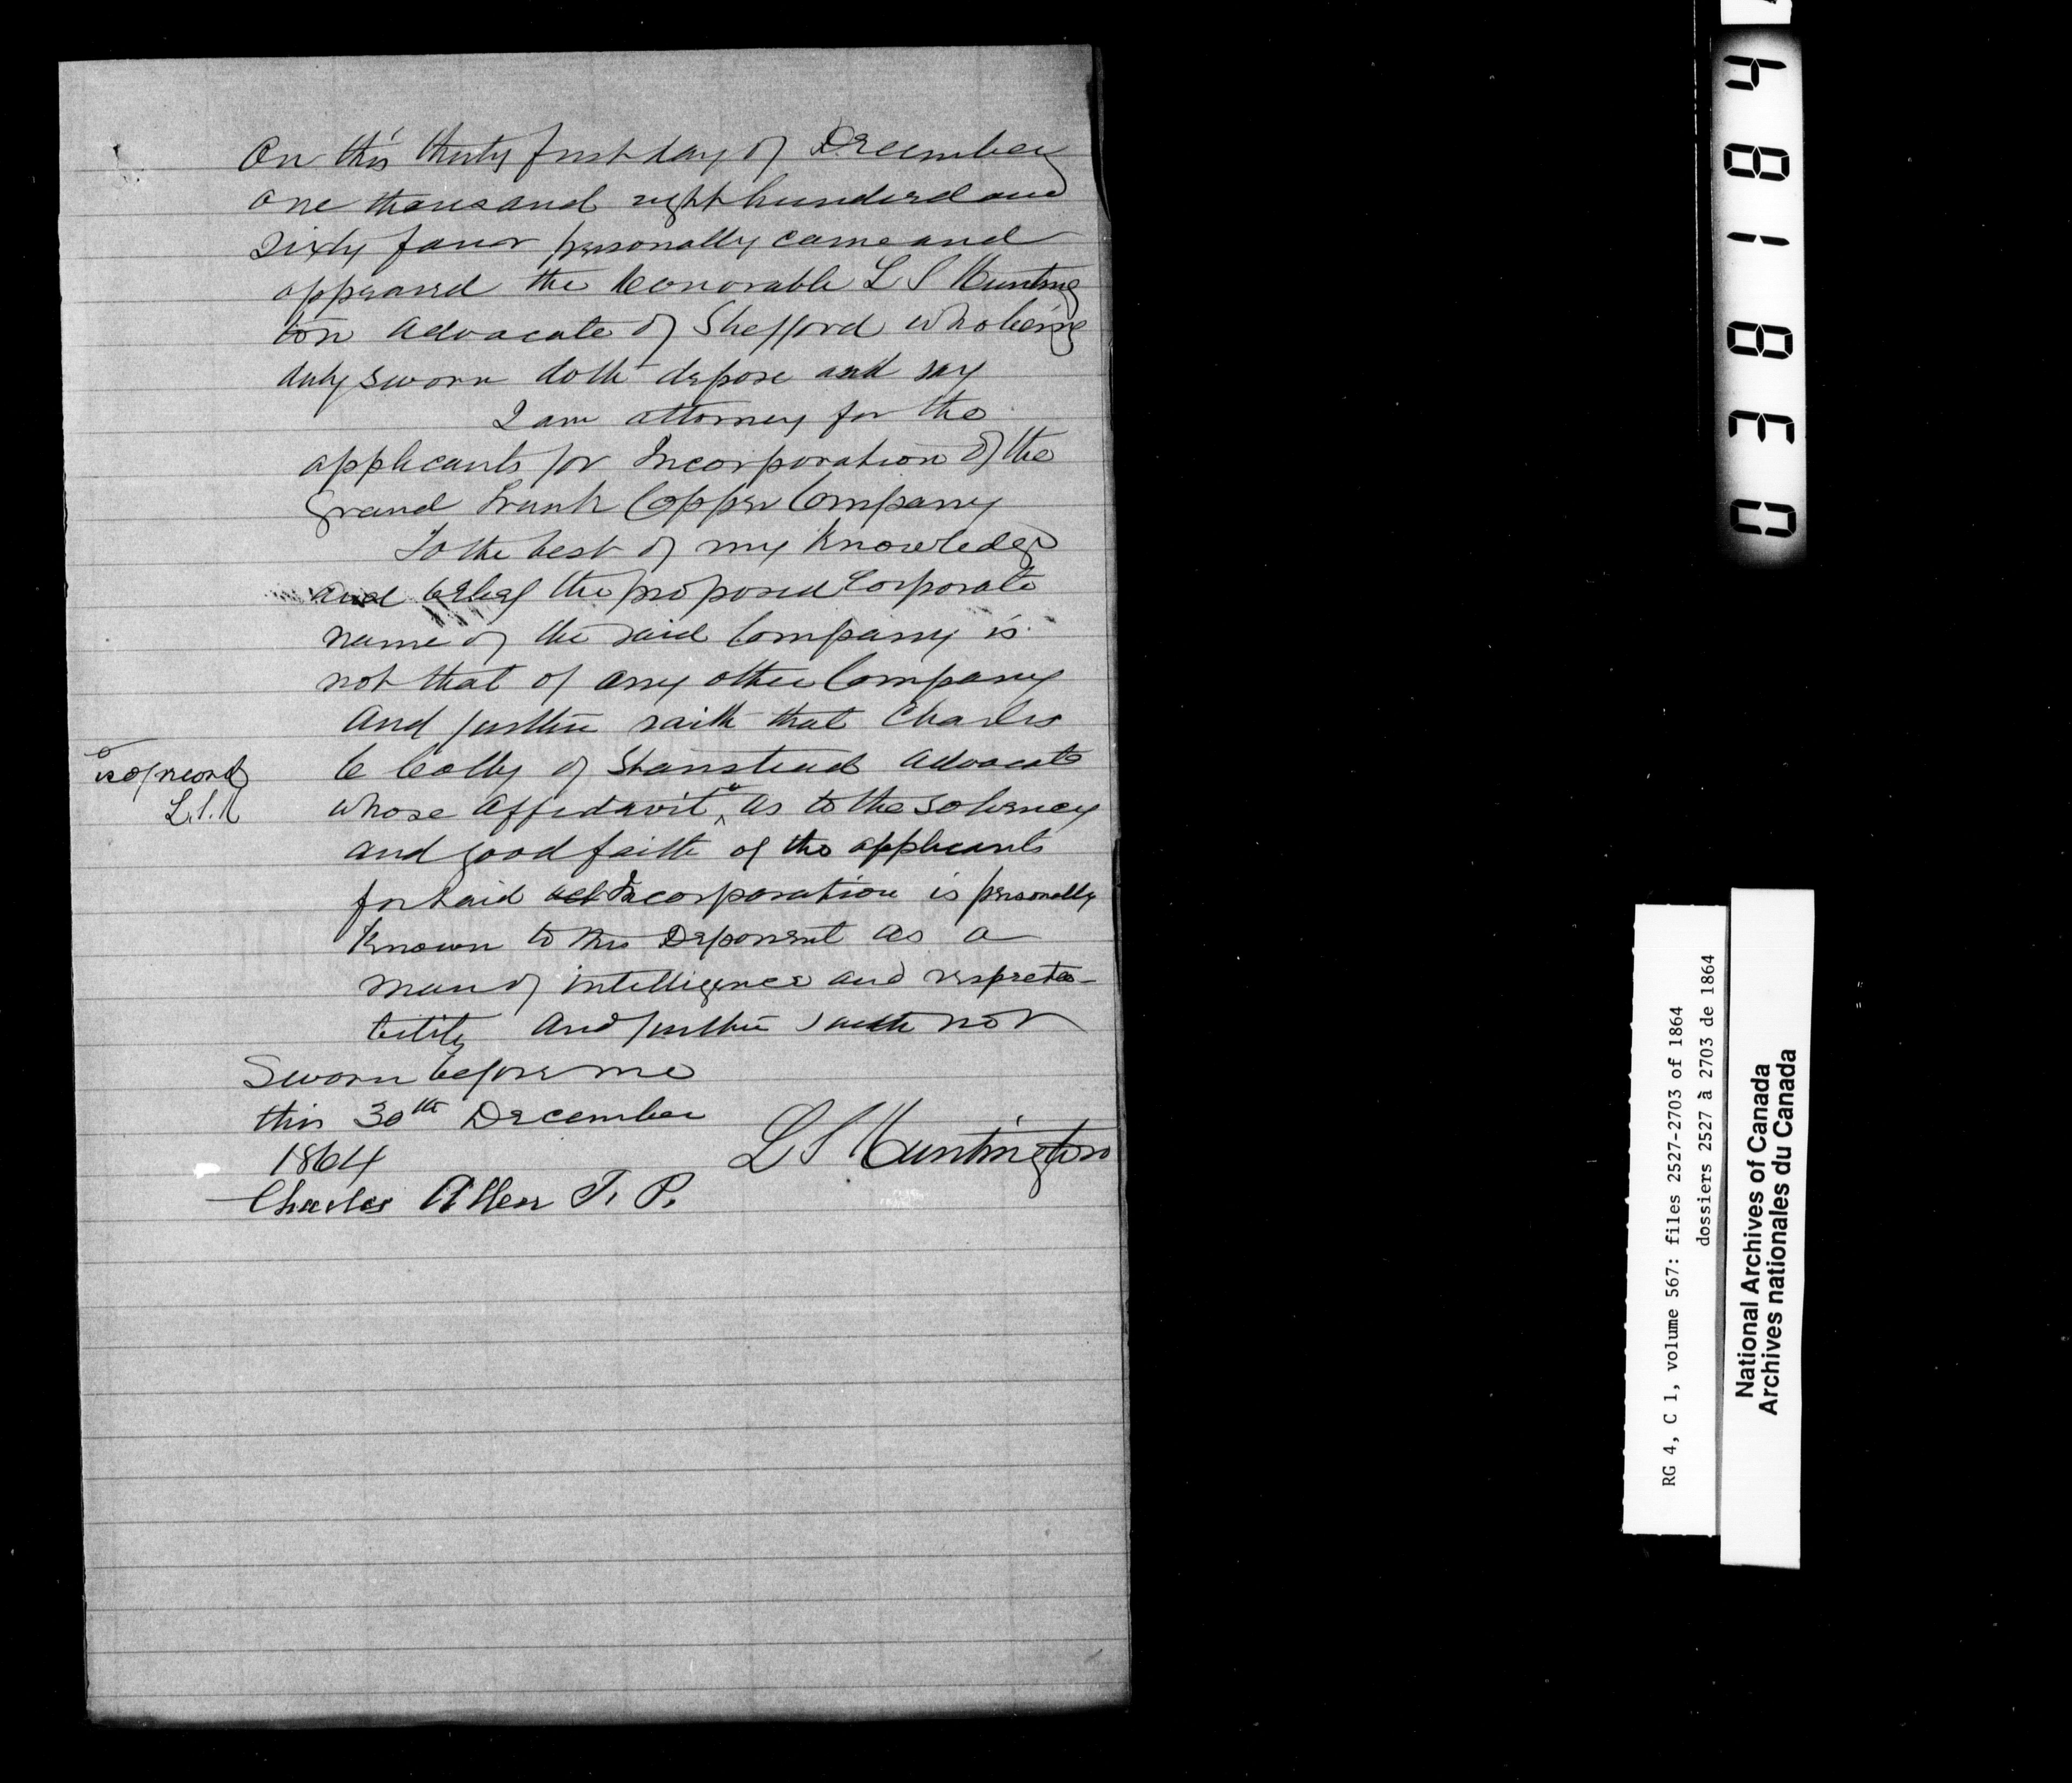 On this thirty first day of December
one thousand eight hundred and
sixty four personally came and
appeared the honorable L S Hunting
ton advocate of Shefford who being
duly sworn doth depose and say
I am attorney for the
applicants for Incorporation of the
Grand Trunk Copper Company
To the best of my Knowledge
and belief the proposed Corporate
name of the said Company is
not that of any other Company
And further saith that Charles
C Colby of Stanstead Advocate
is of record
L.S.H
whose affidavit as to the solvency
and good faith of the applicants
for said act Incorporation is personally
Known to this Deponent as a
man of intelligence and respecta-
bility And further saith not
Sworn before me
this 30th December
1864
L S Huntington
Charles Allen J. P.
038184
RG 4, C 1, volume 567: files 2527-2703 of 1864
dossiers 2527 à 2703 de 1864
National Archives of Canada
Archives nationales du Canada